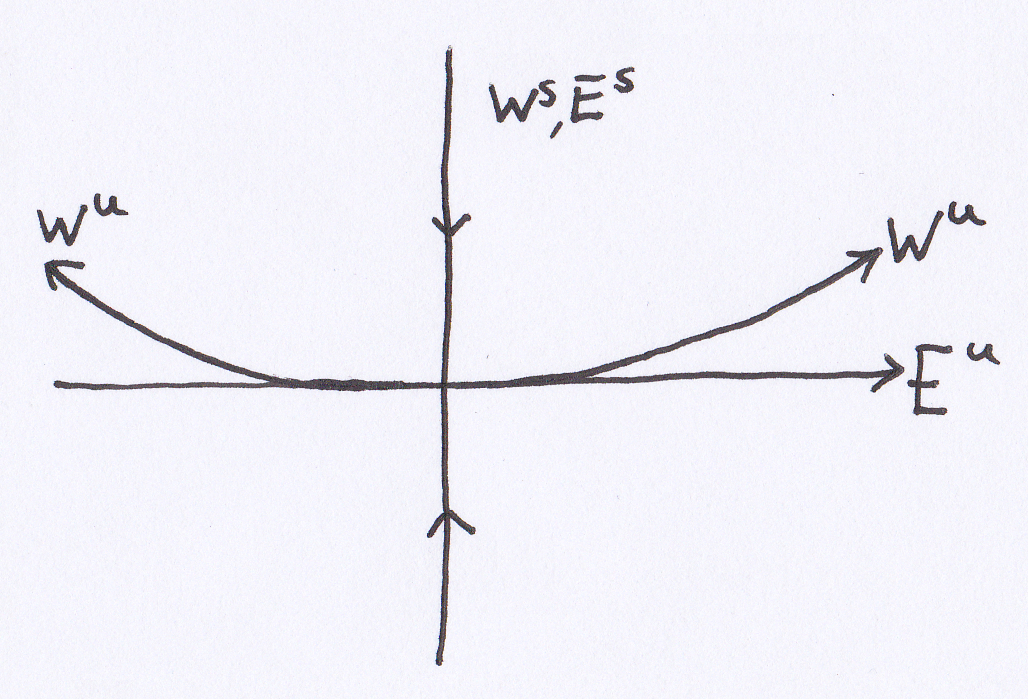 Wˢ, Eˢ
Wᵘ
Wᵘ
Eᵘ